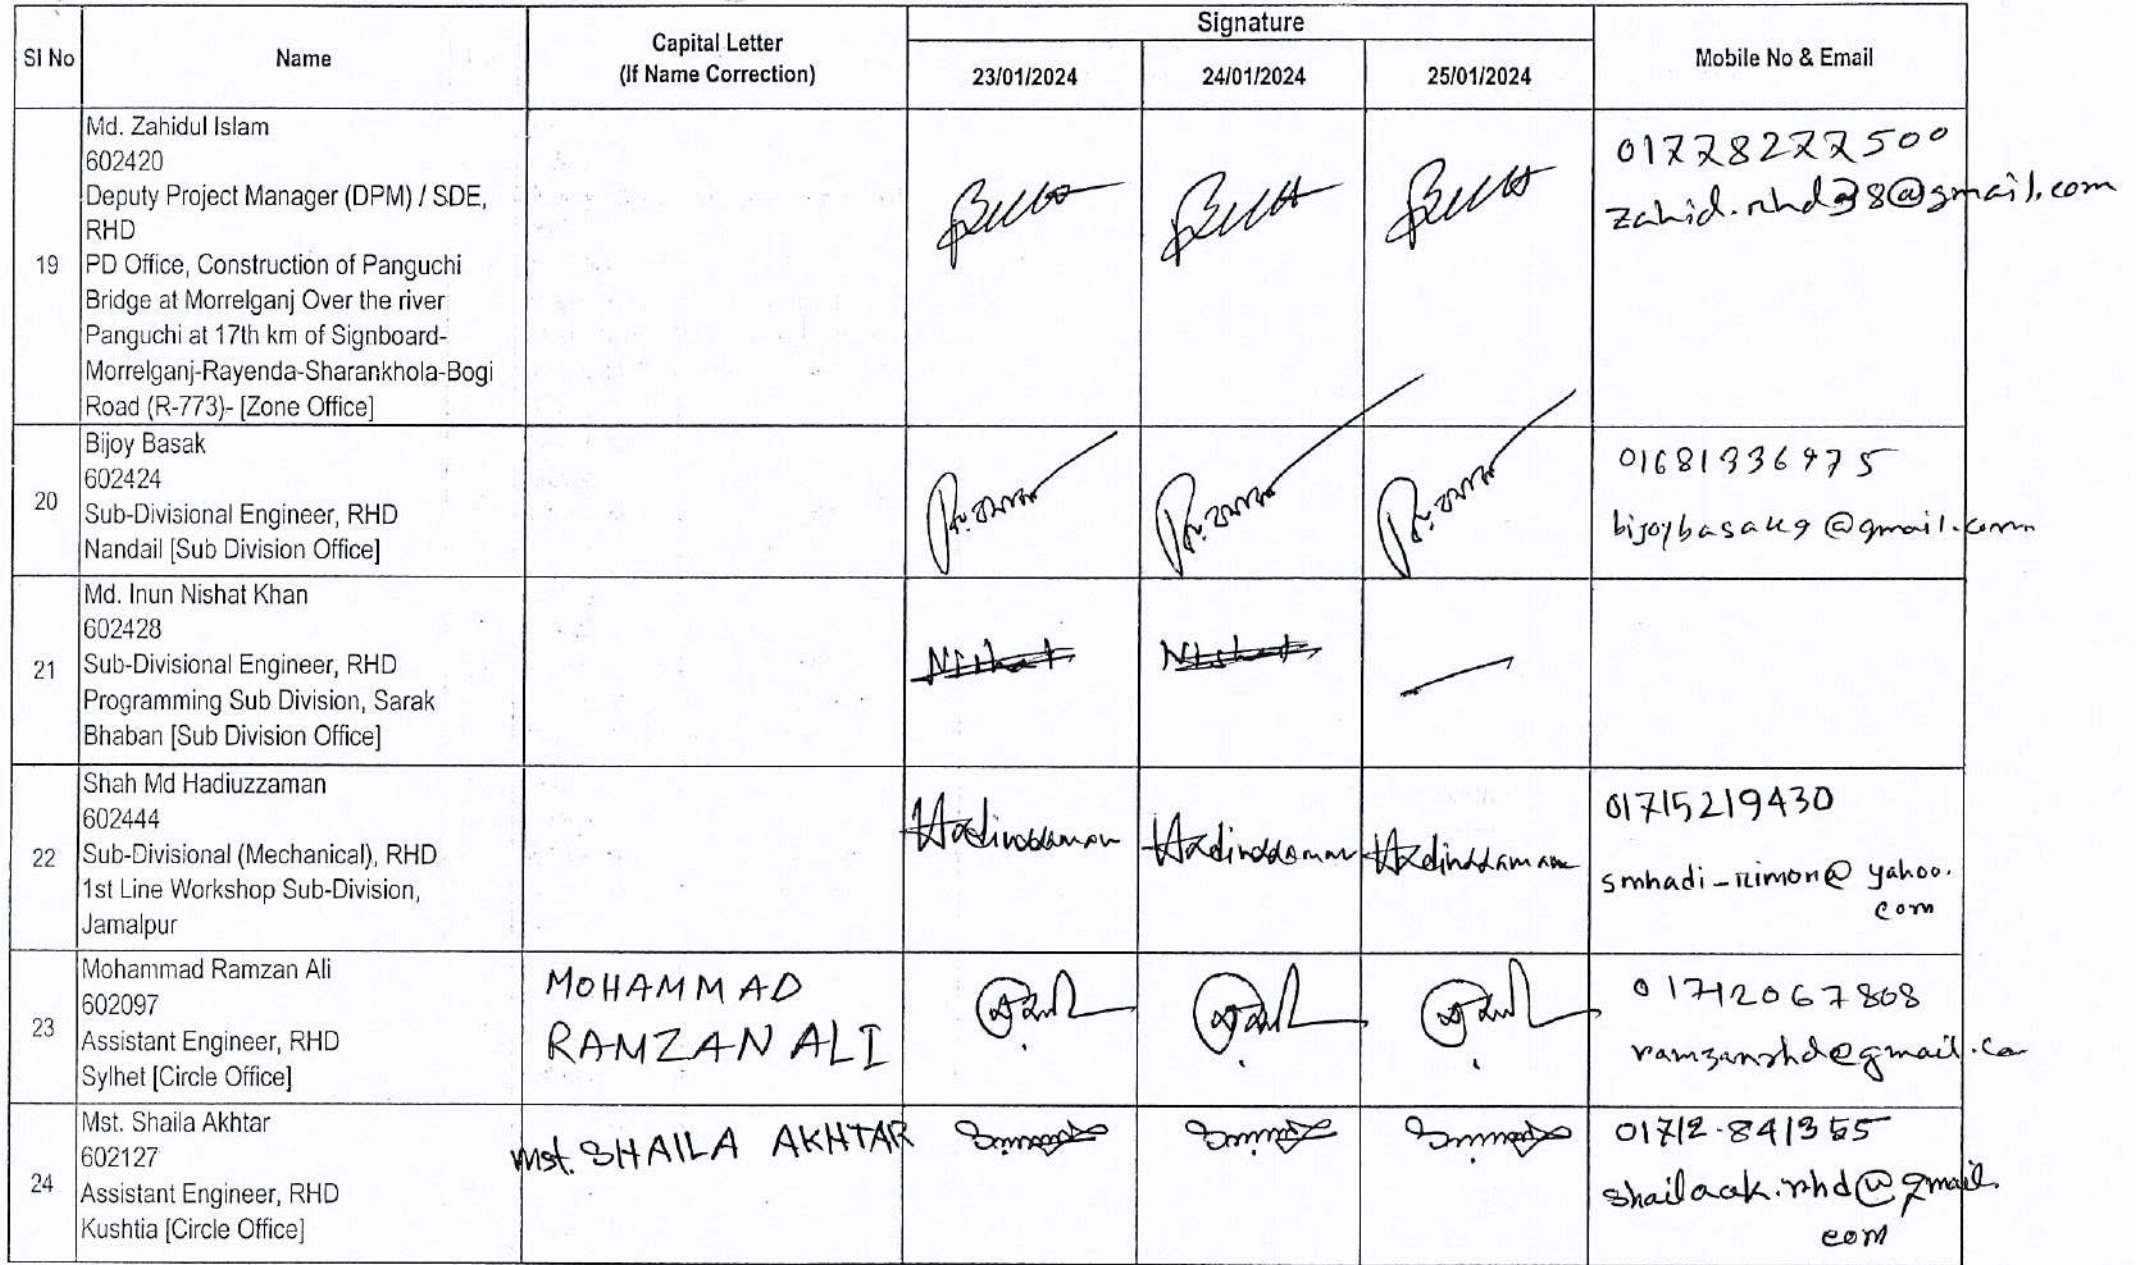 Sl No
Name
Capital Letter
(If Name Correction)
Signature
23/01/2024
24/01/2024
25/01/2024
Mobile No & Email
19
Md. Zahidul Islam
602420
Deputy Project Manager (DPM) / SDE,
RHD
PD Office, Construction of Panguchi
Bridge at Morrelganj Over the river
Panguchi at 17th km of Signboard-
Morrelganj-Rayenda-Sharankhola-Bogi
Road (R-773)- [Zone Office]
01778277500
zahid.rhd38@gmail.com
20
Bijoy Basak
602424
Sub-Divisional Engineer, RHD
Nandail [Sub Division Office]
bijoybasak9@gmail.com
21
Md. Inun Nishat Khan
602428
Sub-Divisional Engineer, RHD
Programming Sub Division, Sarak
Bhaban [Sub Division Office]
Nishat
Nishat
22
Shah Md Hadiuzzaman
602444
Sub-Divisional (Mechanical), RHD
1st Line Workshop Sub-Division,
Jamalpur
Hadiuzzaman
Hadiuzzaman
Hadiuzzaman
01715219430
smhadi-rimon@yahoo.
com
23
Mohammad Ramzan Ali
602097
Assistant Engineer, RHD
Sylhet [Circle Office]
MOHAMMAD
RAMZAN ALI
01712067808
ramzanrhd@gmail.co
24
Mst. Shaila Akhtar
602127
Assistant Engineer, RHD
Kushtia [Circle Office]
Mst. SHAILA AKHTAR
01712-841355
shailaak.rhd@gmail.
com